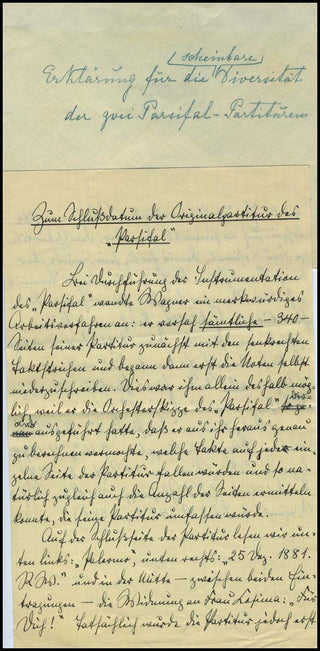 (scheinbare)
Erklärung für die Diversität
der zwei Parsifal-Partituren
Zum Schlußdatum der Originalpartitur des
„Parsifal"
Bei Durchführung der Instrumentation
des „Parsifal" wandte Wagner ein merkwürdiges
Arbeitsverfahren an: er versah sämtliche – 340 –
Seiten seiner Partitur zunächst mit den senkrechten
Taktstrichen und begann dann erst die Noten selbst
niederzuschreiben. Dies war ihm allein deshalb mög-
lich, weil er die Orchesterskizze des „Parsifal"
ausgeführt hatte, daß er aus ihr heraus genau
zu berechnen vermochte, welche Takte auf jede ein-
zelne Seite der Partitur fallen würden und so na-
türlich zugleich auch die Anzahl der Seiten ermitteln
konnte, die seine Partitur umfassen würde.
Auf der Schlußseite der Partitur lesen wir un-
ten links: „Palermo", unten rechts: „25 Dez. 1881.
RW." und in der Mitte – zwischen beiden Ein-
tragungen – die Widmung an Frau Cosima: „Für
Dich!" Tatsächlich wurde die Partitur jedoch erst